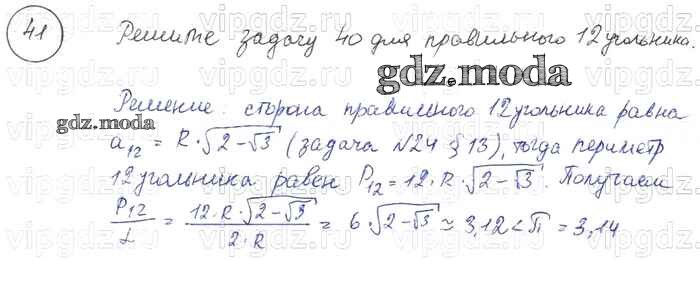 41 Решите задачу 40 для правильного 12 угольника.
gdz.moda
Решение: сторона правильного 12 угольника равна
gdz.moda
a₁₂ = R·√(2-√3) (задача №24 §13), тогда периметр
12 угольника равен P₁₂ = 12·R·√(2-√3). Получаем
P₁₂/L = 12·R·√(2-√3)/2·R = 6·√(2-√3) ≃ 3,12 < π = 3,14
vipgdz.com